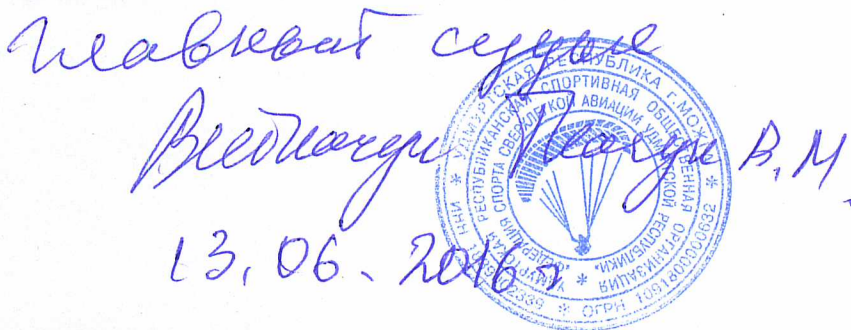 Главный судья
В.М.
13.06.2016г
УДМУРТСКАЯ РЕСПУБЛИКА Г.МОЖГА * ОГРН 1091800000632 * ИНН
УДМУРТСКАЯ РЕСПУБЛИКАНСКАЯ СПОРТИВНАЯ ОБЩЕСТВЕННАЯ ОРГАНИЗАЦИЯ *
"ФЕДЕРАЦИЯ СПОРТА СВЕРХЛЕГКОЙ АВИАЦИИ УДМУРТСКОЙ РЕСПУБЛИКИ"